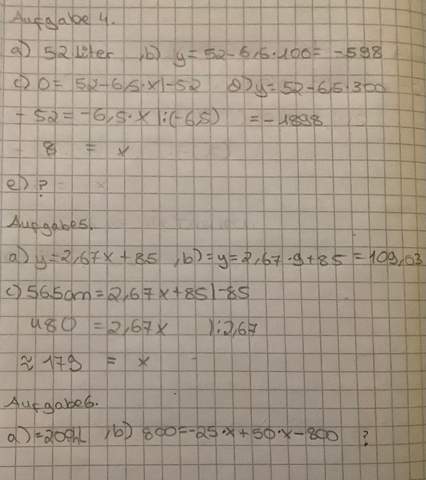 Aufgabe 4.
a) 52 Liter , b) y = 52 - 6,5 · 100 = -598
c) 0 = 52 - 6,5 · x | -52 d) y = 52 - 6,5 · 300
- 52 = -6,5 · x | : (-6,5) = - 1898
8 = x
e) ?
Aufgabe 5.
a) y = 2,67x + 85 , b) = y = 2,67 · 9 + 85 = 109,03
c) 565cm = 2,67x + 85 | -85
480 = 2,67x ) : 2,67
≈ 179 = x
Aufgabe 6.
a) = 200hL , b) 800 = -25 · x + 50 · x - 800 ?